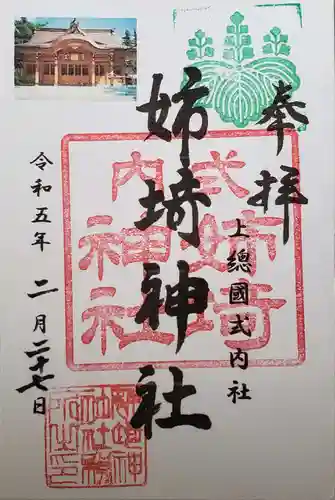 奉拝
上總國式内社
姉埼神社
令和五年 二月二十七日
式内
姉埼
神社
姉埼神
社社務
所之印